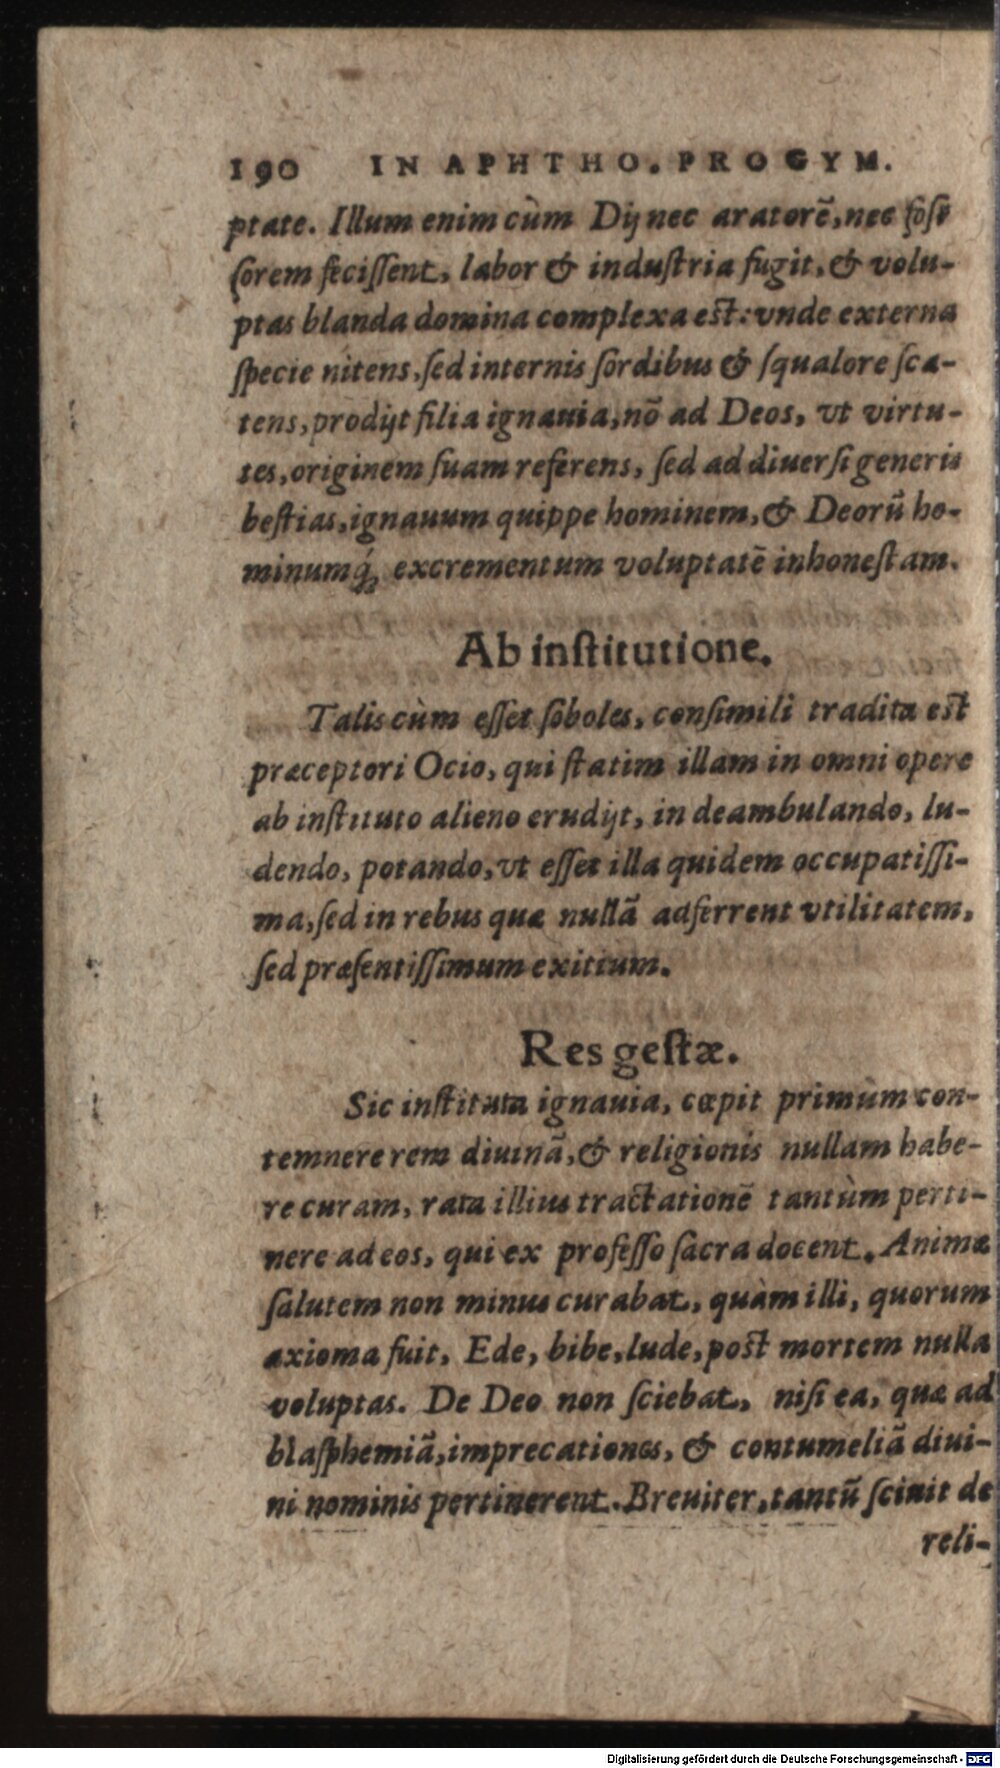 190 IN APHTHO. PROGYM.
ptate. Illum enim cùm Dij nec aratorē, nec fos-
sorem fecissent, labor & industria fugit, & volu-
ptas blanda domina complexa est: vnde externa
specie nitens, sed internis sordibus & squalore sca-
tens, prodijt filia ignauia, nō ad Deos, vt virtu-
tes, originem suam referens, sed ad diuersi generis
bestias, ignauum quippe hominem, & Deorū ho-
minumq́; excrementum voluptatē inhonestam.
Ab institutione.
Talis cùm esset soboles, consimili tradita est
præceptori Ocio, qui statim illam in omni opere
ab instituto alieno erudijt, in deambulando, lu-
dendo, potando, vt esset illa quidem occupatissi-
ma, sed in rebus quæ nullā adferrent vtilitatem,
sed præsentissimum exitium.
Res gestæ.
Sic instituta ignauia, cœpit primùm con-
temnere rem diuinā, & religionis nullam habe-
re curam, rata illius tractationē tantùm perti-
nere ad eos, qui ex professo sacra docent. Animæ
salutem non minus curabat, quàm illi, quorum
axioma fuit, Ede, bibe, lude, post mortem nulla
voluptas. De Deo non sciebat, nisi ea, quæ ad
blasphemiā, imprecationes, & contumeliā diui-
ni nominis pertinerent. Breuiter, tantū sciuit de
reli-
Digitalisierung gefördert durch die Deutsche Forschungsgemeinschaft - DFG